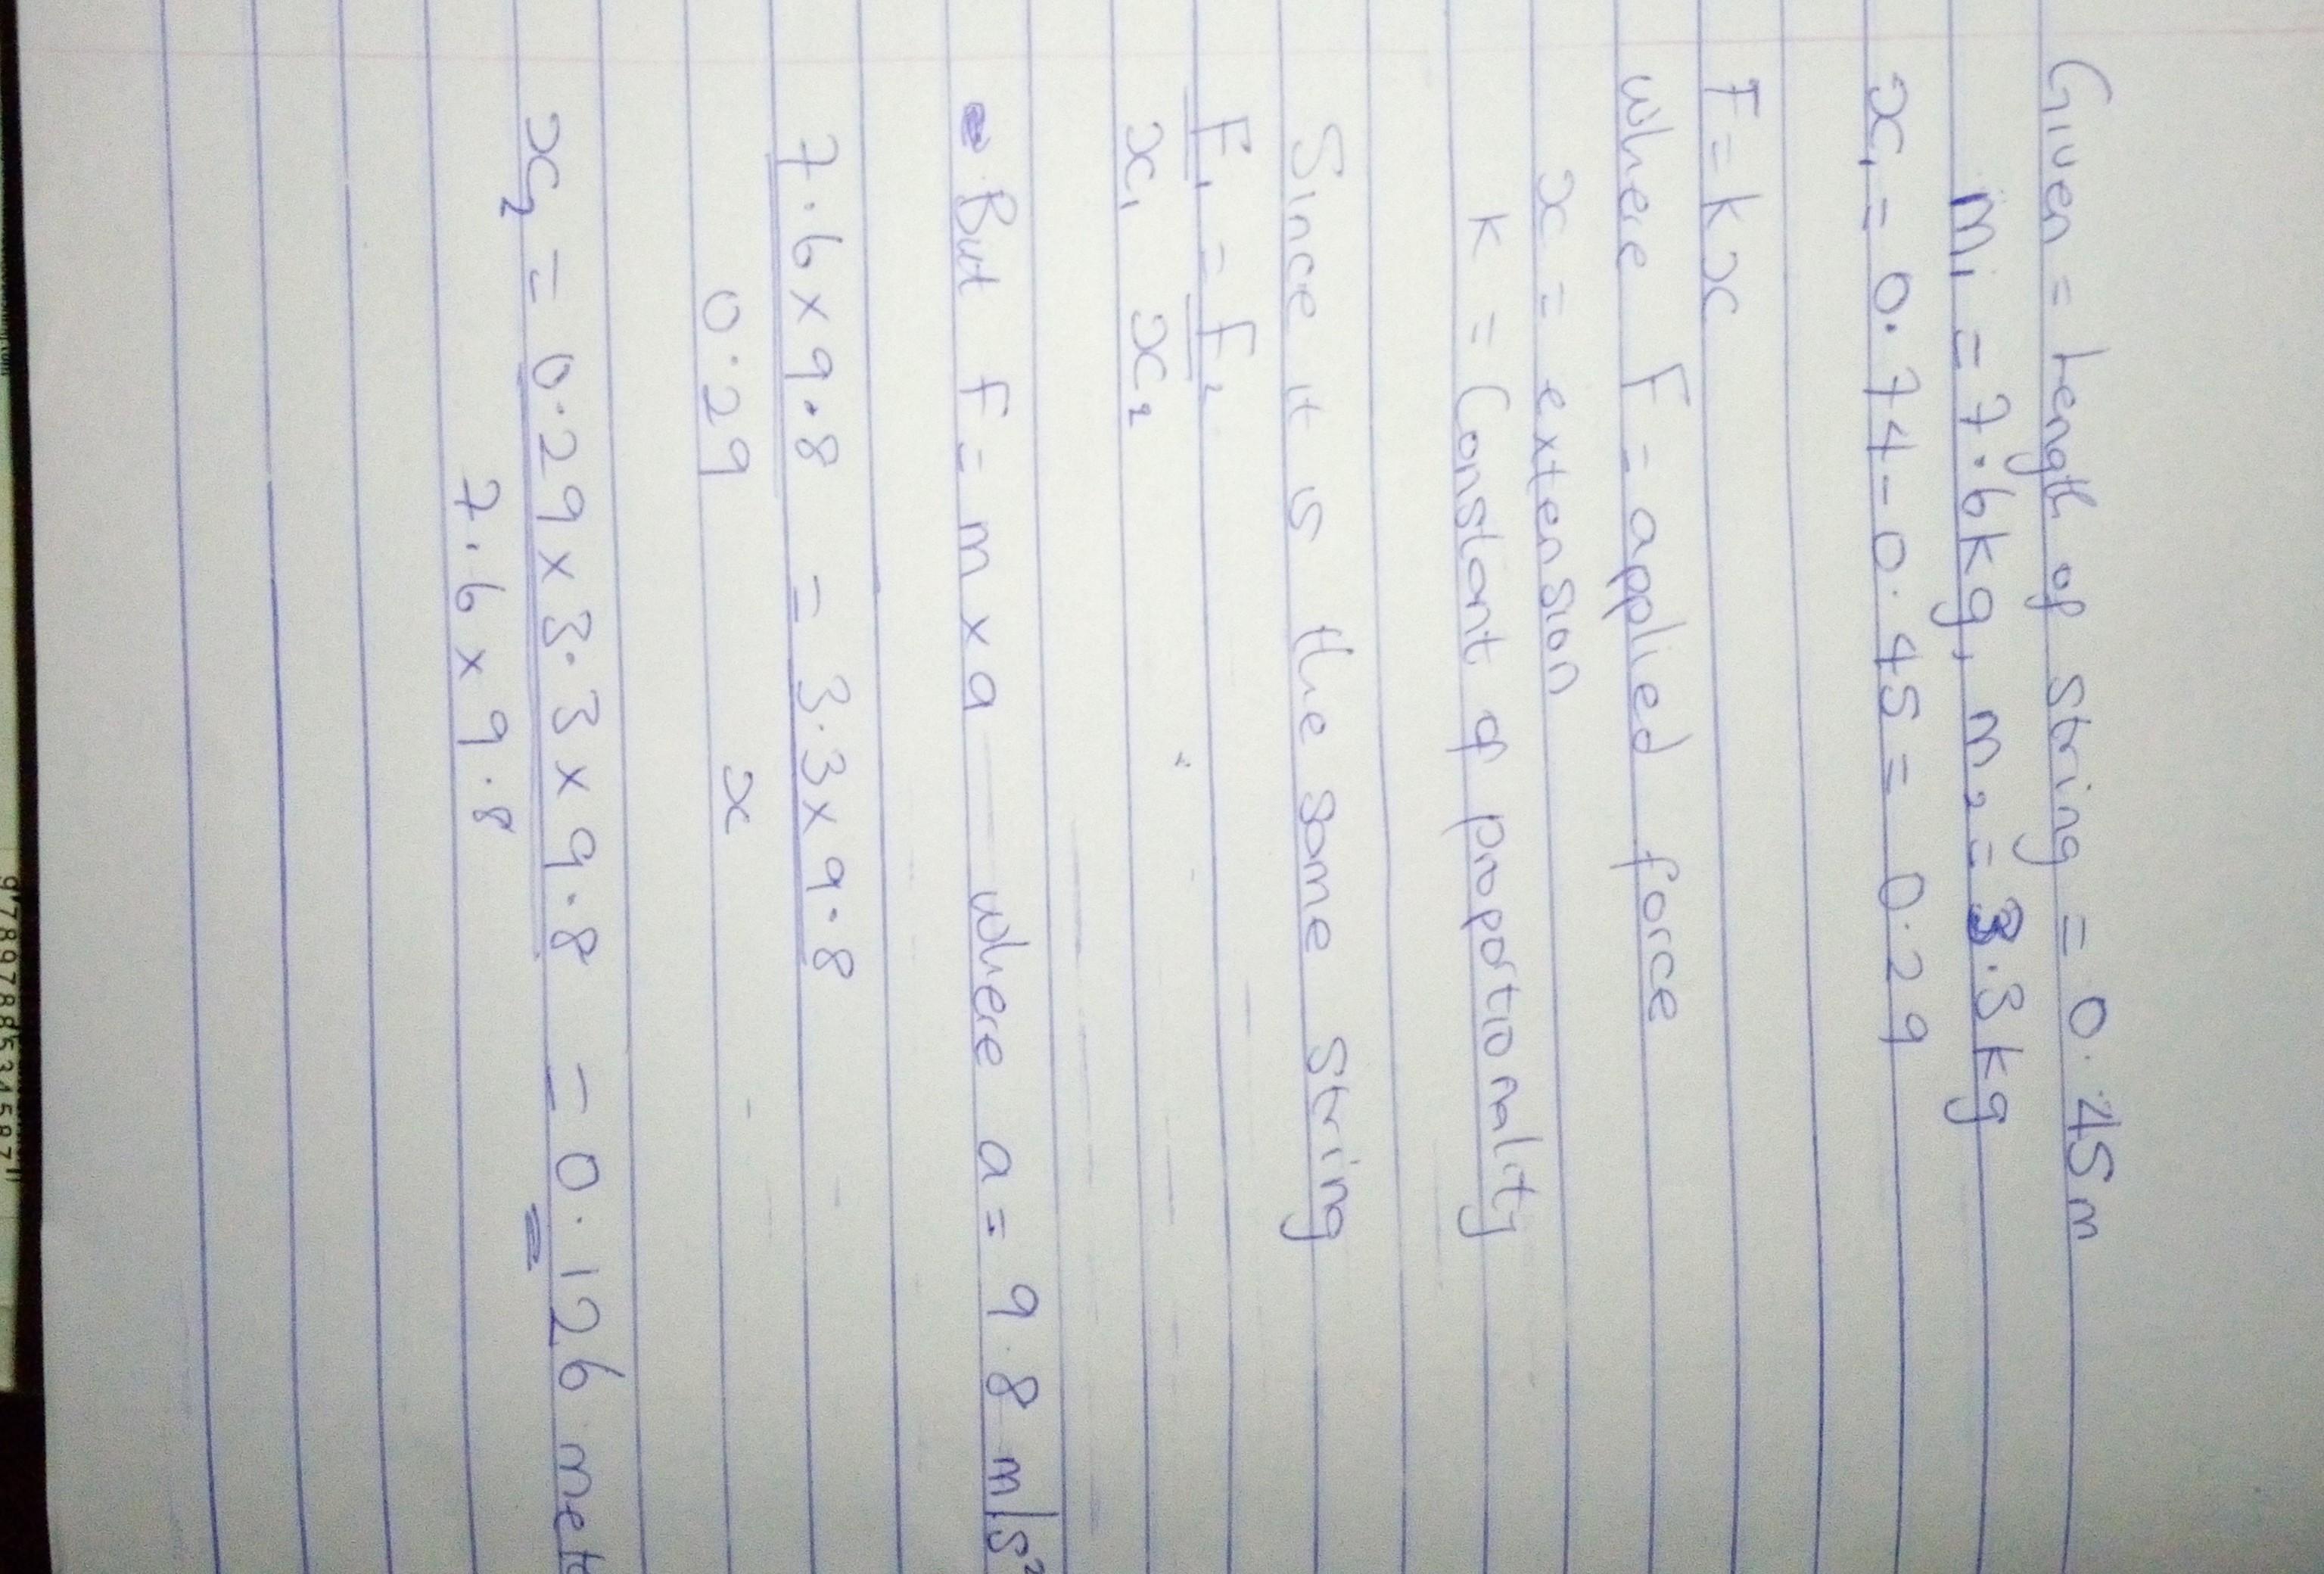 Given = Length of string = 0.45m
m₁ = 7.6kg, m₂ = 3.3kg
x₁ = 0.74 - 0.45 = 0.29
F = kx
where F = applied force
x = extension
k = Constant of proportionality
Since it is the same string
F₁ = F₂
x₁ x₂
But F = m x a where a = 9.8 m/s²
7.6 x 9.8 = 3.3 x 9.8
0.29 x
x₂ = 0.29 x 3.3 x 9.8 = 0.126
7.6 x 9.8